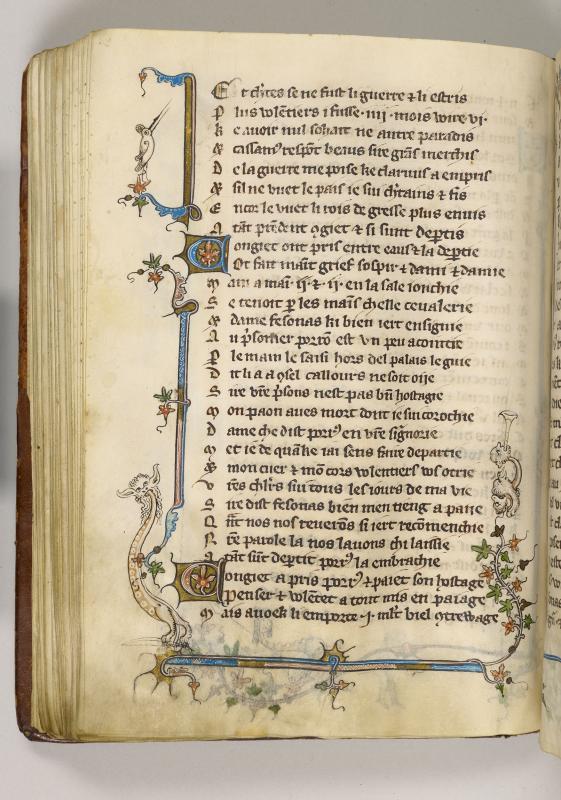 E t chites se ne fust li guerre & li estris
P lus volētiers i fusse · iiii · mois voire · vi ·
K e avoir nul sohait ne autre paradis
& cassamꝰ respōt beaus sire grās merchis
D e la guerre me poise ke clarvus a empris
& sil ne vuet le pais ie sui
E ncor le vuet li rois de gresse plus envis
A tāt prēdent ꝯgiet & si sunt deptis
C ongiet ont pris entre eaus & la deptie
Ot fait maīt grief sospir &
M ain a main · ii · & · ii · en la sale ionchie
S e tenoit p les mains chelle cevalerie
& dame fesonas ki bien iert ensignie
A u p̄sonier porrō est vn peu acointie
P le main le saisi hors del palais le guie
D it li a a ꝯsel callours ne soit oije
S ire vr̄e p̄sons nest pas bn̄ hostagie
M on paon aves mort dont ie sui corochie
D ame che dist porꝰ en vr̄e signorie
M et ie de quāke iai sens faire departie
& mon cuer & mō cors volentiers vos otrie
V r̄es chl̄rs sui tous les iours de ma vie
S ire dist fesonas bien men tieng a paiie
Q n̄t nos nos reverōs si iert recōmenchie
N r̄e parole la nos lavons chi laissie
A tāt sūt deptit porꝰ la embrachie
C ongiet a pris porrꝰ & paiet son hostage
Penser & volētet a tout mis en paiage
M ais avoek li emporte · i · ml̄t biel ꝯtrewage